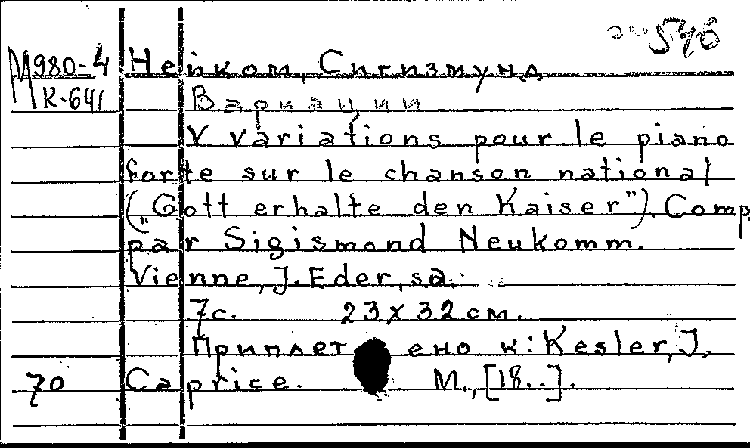 546
М980-4
К-641
Нейком, Сигизмунд
Вариации
V variations pour le piano
forte sur le chanson national
(„Gott erhalte den Kaiser"). Comp.
par Sigismond Neukomm.
Vienne, J. Eder, sa.
7c. 23x32 см.
Приплетено к: Kesler, J.
70 Caprice. М., [18..].